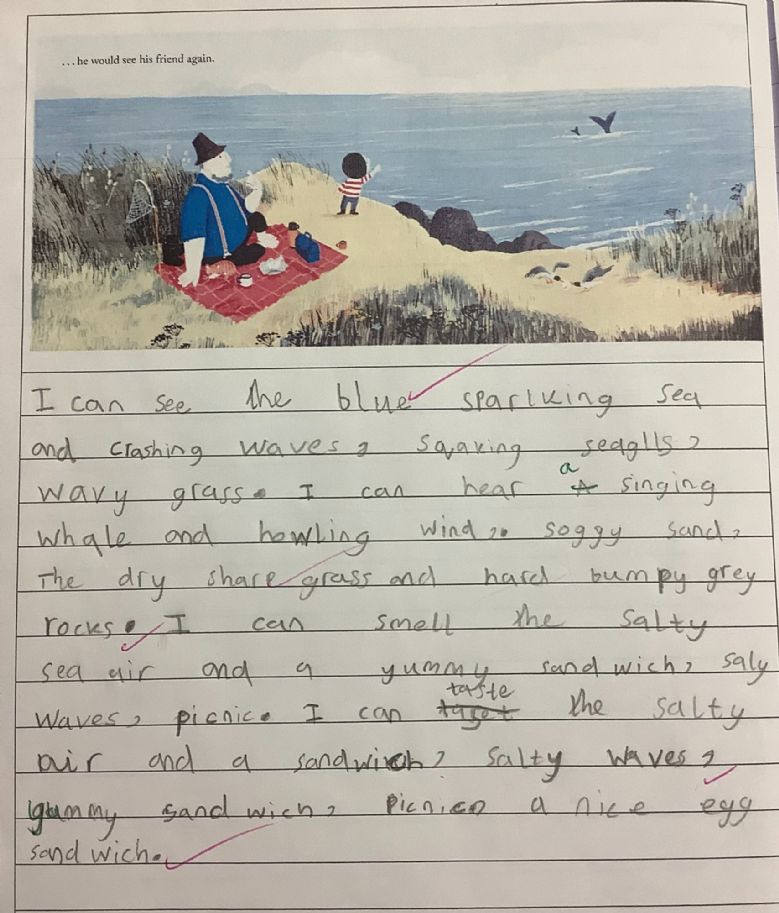 ...he would see his friend again.
I can see the blue sparlking sea
and crashing waves, sqaking seaglls,
wavy grass. I can hear a singing
whale and howling wind,. soggy sand,
The dry share grass and hard bumpy grey
rocks. I can smell the salty
sea air and a yummy sandwich, saly
waves, picnic. I can taste the salty
air and a sandwich, salty waves,
yummy sandwich, picnic a nice egg
sandwich.